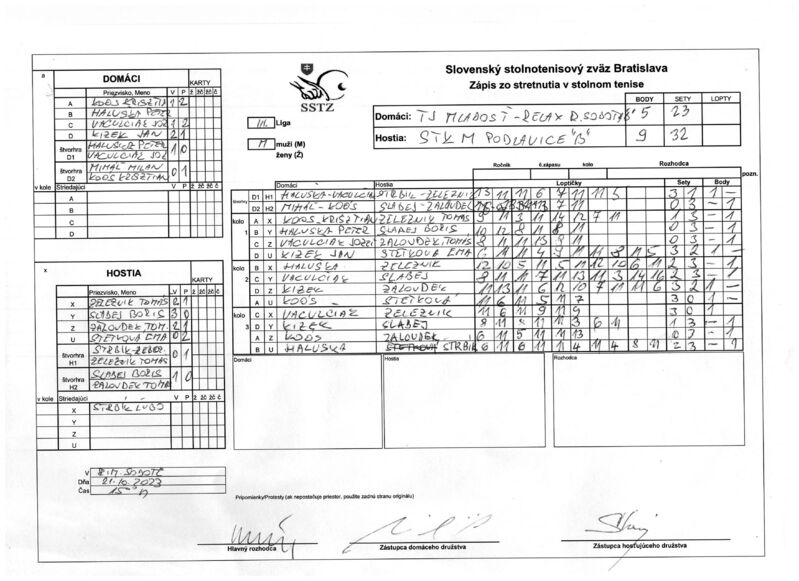 Slovenský stolnotenisový zväz Bratislava
Zápis zo stretnutia v stolnom tenise
SSTZ
III. Liga
M muži (M)
ženy (Ž)
BODY SETY LOPTY
Domáci: TJ MLADOSŤ-RELAX R.SOBOTA "B" 5 23
Hostia: STK M PODLAVICE "B" 9 32
a DOMÁCI KARTY
Priezvisko, Meno V P ž žč žč č
A KOOS KRISZTI 1 2
B HALUSKA PETER
C VACULCIAK JOZ 1 2
D KIZEK JAN 2 1
štvorhra D1 HALUSKA PETER 1 0
VACULCIAK JOZ
štvorhra D2 MIHAL MILAN 0 1
KOOS KRISZTIAN
v kole Striedajúci V P ž žč žč č
A
B
C
D
x HOSTIA KARTY
Priezvisko, Meno V P ž žč žč č
X ZELEZNIK TOMAS 2 1
Y SLABEJ BORIS 3 0
Z ZALOUDEK TOM. 2 1
U STETKOVA EMA 0 2
štvorhra H1 STRBIK 0 1
ZELEZNIK TOMAS
štvorhra H2 SLABEJ BORIS 1 0
ZALOUDEK TOMA
v kole Striedajúci V P ž žč žč č
X STRBIK LUBO
Y
Z
U
Ročník č.zápasu kolo Rozhodca
Domáci Hostia Loptičky Sety Body pozn.
štvorhry D1 H1 HALUSKA-VACULCIAK STRBIK-ZELEZNIK 13 11 11 6 7 11 11 5 3 1 1 -
D2 H2 MIHAL-KOOS SLABEJ-ZALOUDEK 7 11 0 3 - 1
kolo 1 A X KOOS KRISZTIAN ZELEZNIK TOMAS 9 11 3 11 14 12 7 11 1 3 - 1
B Y HALUSKA PETER SLABEJ BORIS 10 12 8 11 8 11 0 3 - 1
C Z VACULCIAK JOZEF ZALOUDEK TOMAS 8 11 11 13 8 11 0 3 - 1
D U KIZEK JAN STETKOVA EMA 11 8 11 5 3 2 1 -
kolo 2 B X HALUSKA ZELEZNIK 12 10 5 11 5 11 12 10 6 11 2 3 - 1
C Y VACULCIAK SLABEJ 8 11 11 7 11 13 11 3 14 16 2 3 - 1
D Z KIZEK ZALOUDEK 11 13 11 6 12 10 7 11 11 6 3 2 1 -
A U KOOS STETKOVÁ 11 6 11 5 11 7 3 0 1
kolo 3 C X VACULCIAK ZELEZNIK 11 6 11 9 11 9 3 0 1
D Y KIZEK SLABEJ 8 11 11 3 6 11 1 3 - 1
A Z KOOS ZALOUDEK 6 11 5 11 11 13 0 3 - 1
B U HALUSKA STETKOVÁ STRBIK 6 11 6 11 11 4 11 4 8 11 2 3 - 1
Domáci Hostia Rozhodca
V RIM. SOBOTE
Dňa 21.10.2023
Čas 15 h
Pripomienky/Protesty (ak nepostačuje priestor, použite zadnú stranu originálu)
Hlavný rozhodca
Zástupca domáceho družstva
Zástupca hosťujúceho družstva